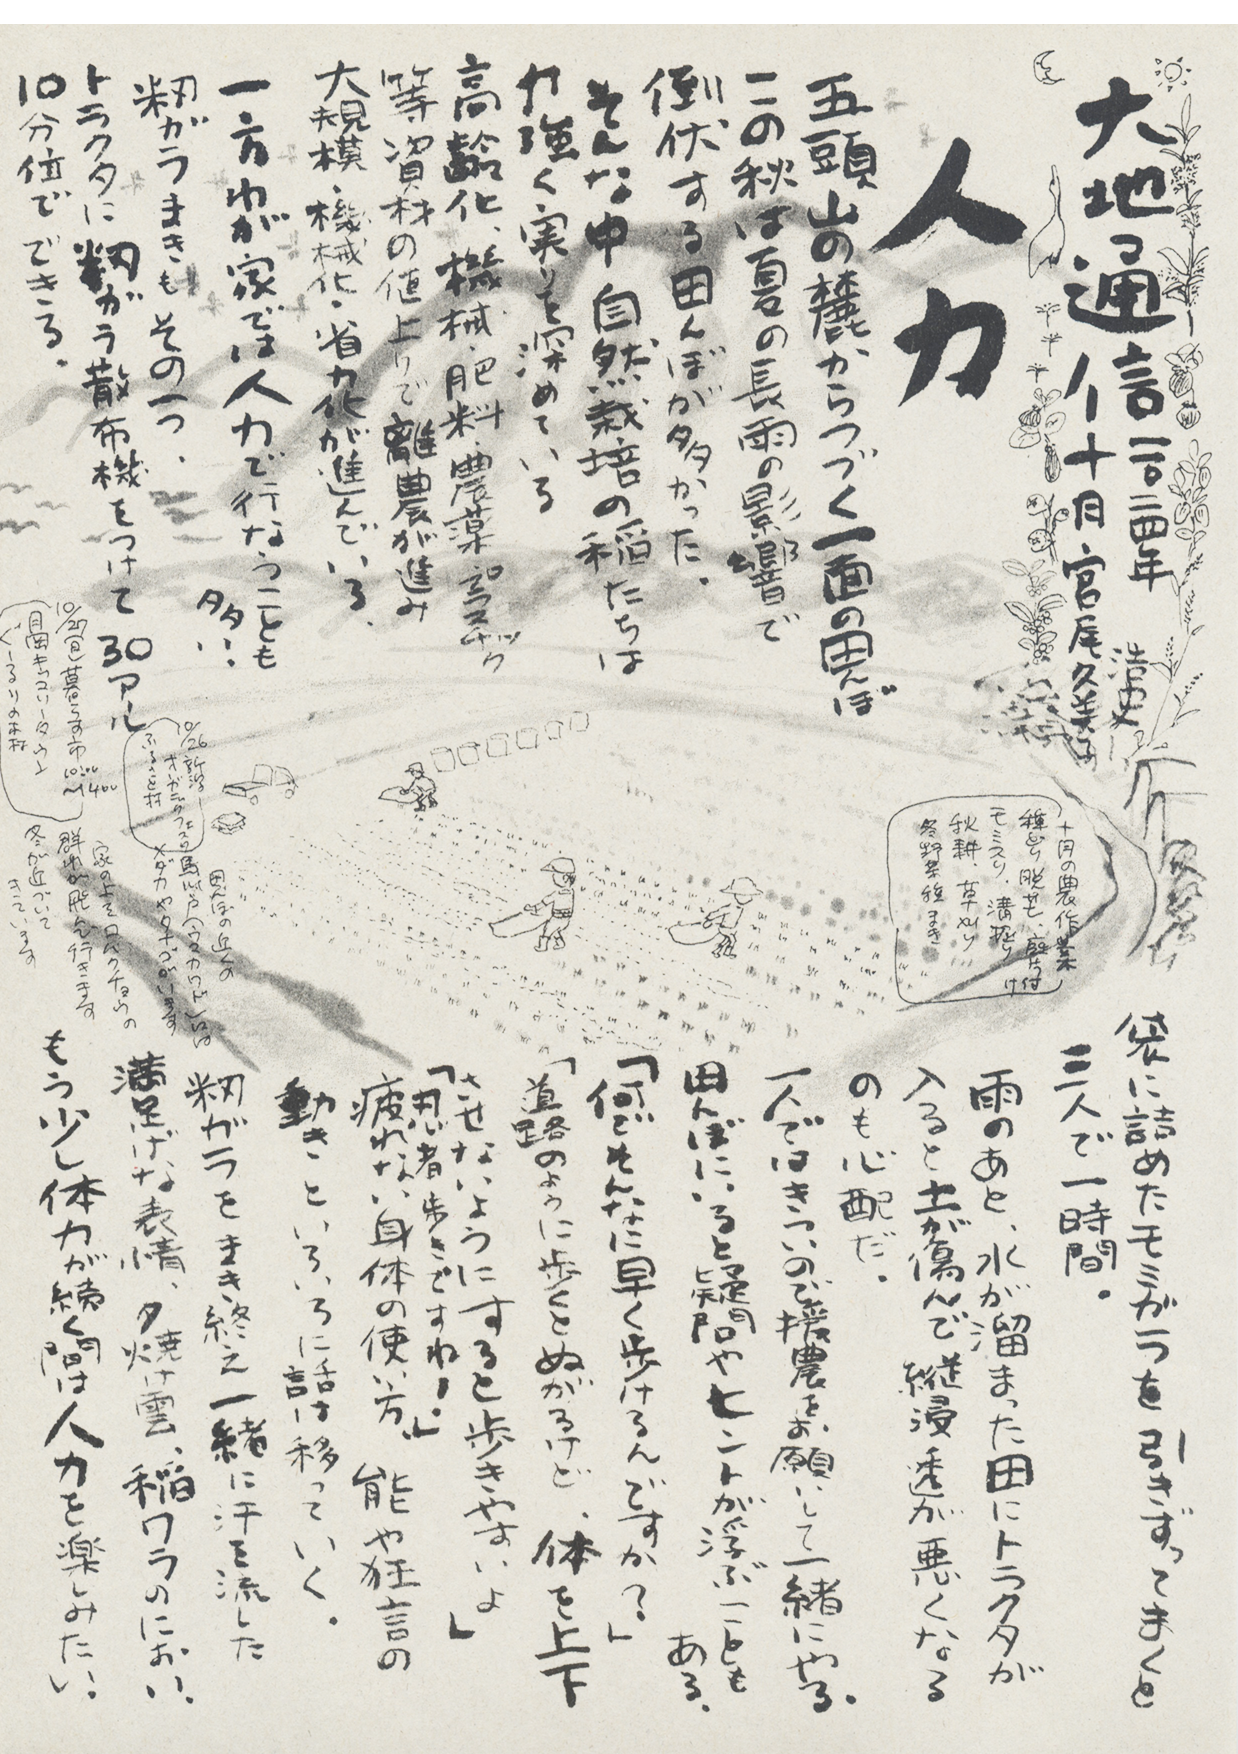 大地通信 二〇二四年
十月 宮尾 浩史
久美子
人力
五頭山の麓からつづく一面の田んぼ
この秋は夏の長雨の影響で
倒伏する田んぼが多かった。
そんな中 自然栽培の稲たちは
力強く実りを深めている
高齢化、機械・肥料・農薬・プラスチック
等資材の値上りで離農が進み
大規模・機械化・省力化が進んでいる。
一方わが家では人力で行なうことも
多い。
籾がらまきもその一つ、
トラクタに籾がら散布機をつけて30アル
10分位でできる。
十月の農作業
種とり 脱芒、片付け
モミスリ、溝掘り
秋耕 草刈り
冬野菜種まき
田んぼの近くの
メダカやタナゴがいます
家の上をハクチョウの
群れが飛んで行きます
冬が近づいて
きています
10/26 新潟
オーガニックフェスタ
ふるさと村
10/27㊐ 暮らす市 10:00〜14:00
月岡キャロリータウン
ぐーるりの森
袋に詰めたモミガラを引きずってまくと
三人で一時間。
雨のあと、水が溜まった田にトラクタが
入ると土が傷んで縦浸透が悪くなる
のも心配だ。
一人ではきついので援農をお願いして一緒にやる。
田んぼにいると疑問やヒントが浮ぶことも
ある。
「何でそんなに早く歩けるんですか？」
「道路のように歩くとぬがるけど、体を上下
させないようにすると歩きやすいよ」
「忍者歩きですね！」
疲れない身体の使い方、能や狂言の
動きといろいろに話は移っていく。
籾ガラをまき終え一緒に汗を流した
満足げな表情、夕焼け雲、稲ワラのにおい、
もう少し体力が続く間は人力を楽しみたい。